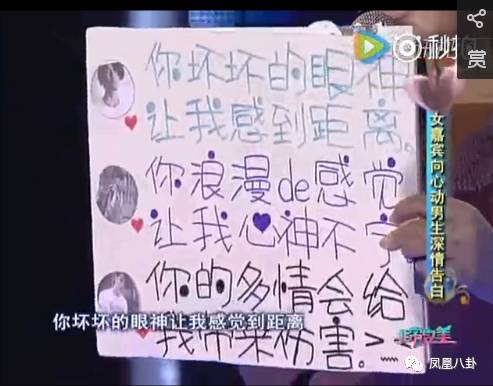 秒拍
赏
你坏坏的眼神
让我感到距离。
你浪漫de感觉
让我心神不宁
你的多情会给
我带来伤害。
女嘉宾向心动男生深情告白
你坏坏的眼神让我感觉到距离
凤凰八卦